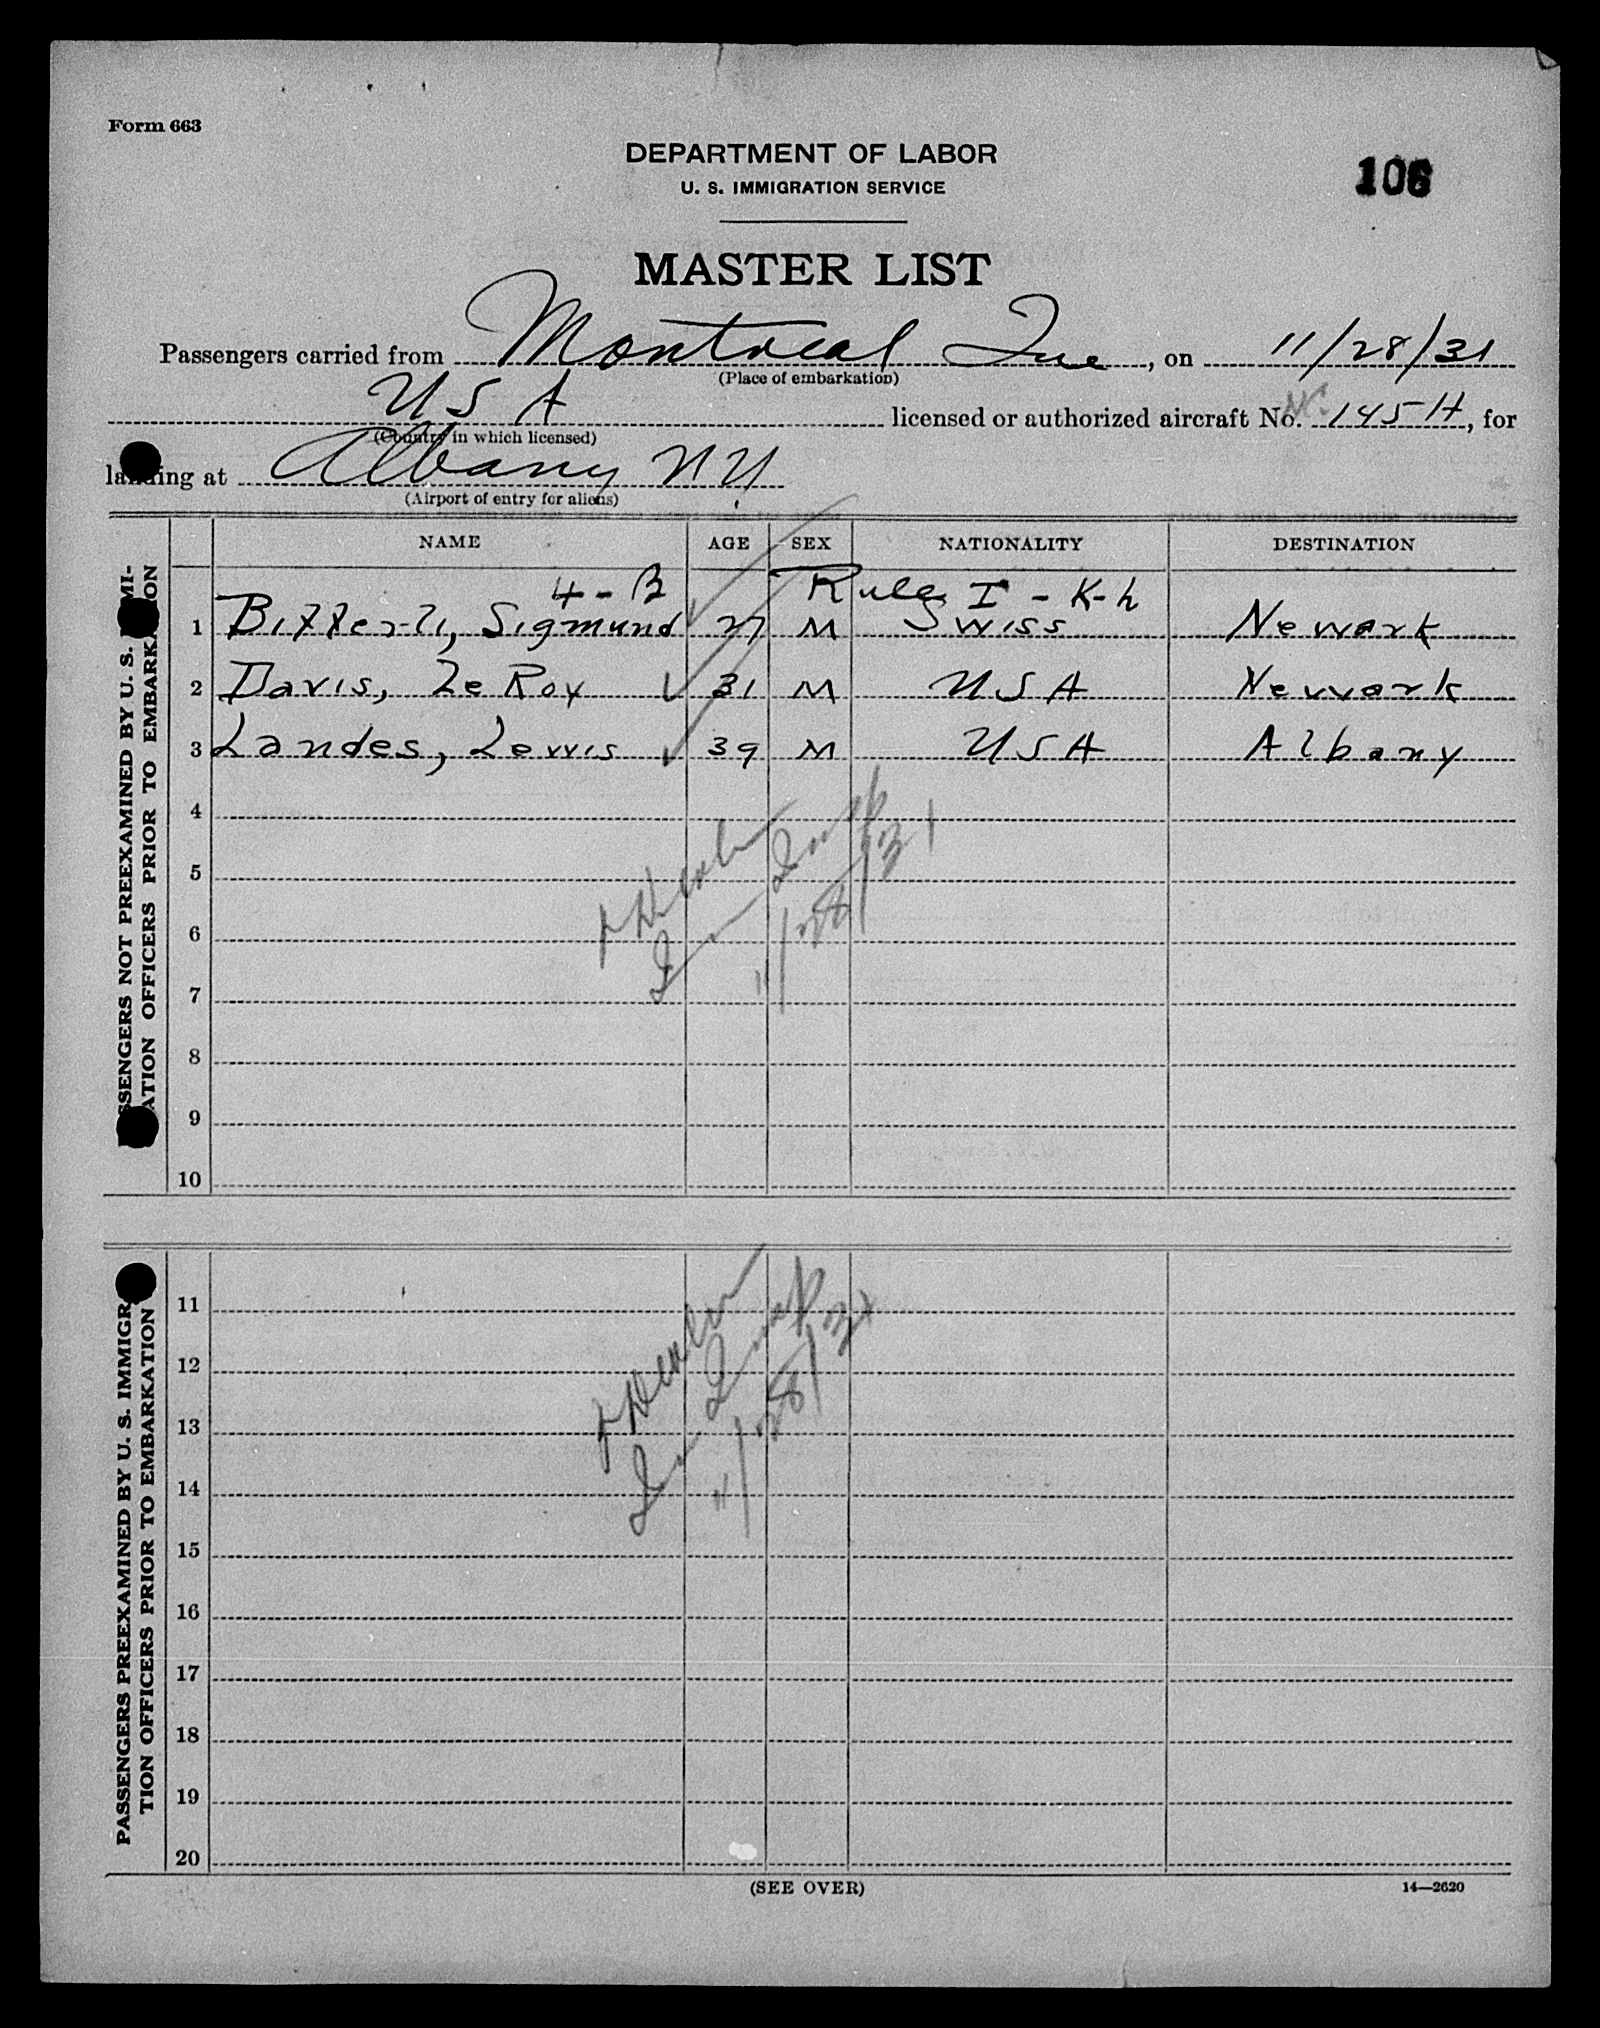 Form 663
DEPARTMENT OF LABOR
U. S. IMMIGRATION SERVICE
106
MASTER LIST
Passengers carried from Montreal Que, on 11/28/31
(Place of embarkation)
USA licensed or authorized aircraft No. NC 145H, for
(Country in which licensed)
landing at Albany N.Y.
(Airport of entry for aliens)
NAME AGE SEX NATIONALITY DESTINATION
4-B Rule I - K-h
1 Sigmund 27 M Swiss Newark
2 Davis, Le Roy 31 M USA Newark
3 Landes, Lewis 39 M USA Albany
4
5
6
7
8
9
10
11/28/31
PASSENGERS NOT PREEXAMINED BY U. S. IMMI-
GRATION OFFICERS PRIOR TO EMBARKATION
11
12
13
14
15
16
17
18
19
20
11/28/31
PASSENGERS PREEXAMINED BY U. S. IMMIGRA-
TION OFFICERS PRIOR TO EMBARKATION
(SEE OVER)
14—2620